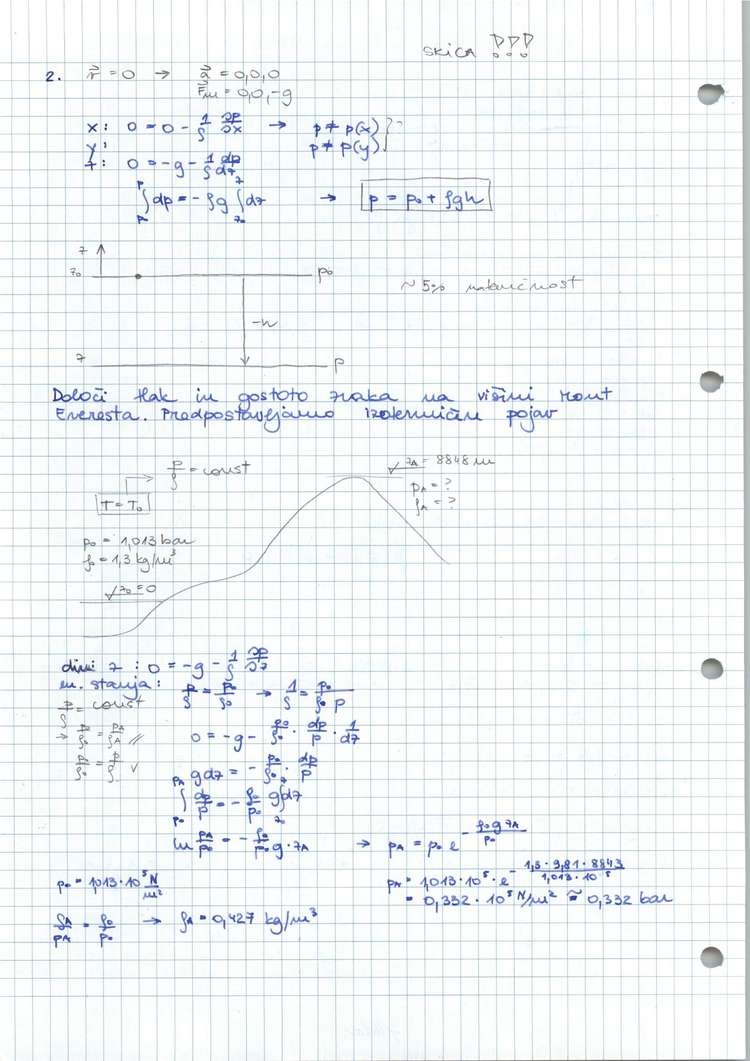 SKICA !!!
2. v⃗ = 0 → a⃗ = 0,0,0
F⃗m = 0,0,-g
x: 0 = 0 - 1/ρ ∂p/∂x → p ≠ p(x)
y: p ≠ p(y)
z: 0 = -g - 1/ρ dp/dz
∫ dp = -ρg ∫ dz → p = p₀ + ρgh
z
z₀ p₀
~ 5% natančnost
-h
z p
Določi tlak in gostoto zraka na višini Mont
Everesta. Predpostavljamo izotermičen pojav
p/ρ = const
zA = 8848 m
T = T₀
pA = ?
ρA = ?
p₀ = 1,013 bar
ρ₀ = 1,3 kg/m³
z₀ = 0
z : 0 = -g - 1/ρ ∂p/∂z
en. stanja: p/ρ = p₀/ρ₀ → 1/ρ = p₀/(ρ₀ p)
p/ρ = const
→ p₀/ρ₀ = pA/ρA //
0 = -g - p₀/ρ₀ · dp/p · 1/dz
p₀/ρ₀ = p/ρ ✓
g dz = - p₀/ρ₀ · dp/p
∫ dp/p = - ρ₀/p₀ ∫ g dz
ln pA/p₀ = - ρ₀/p₀ g · zA → pA = p₀ e^(-ρ₀ g zA / p₀)
p₀ = 1,013·10⁵ N/m²
pA = 1,013·10⁵ · e^(-1,3 · 9,81 · 8843 / 1,013·10⁵)
= 0,332 · 10⁵ N/m² ≈ 0,332 bar
ρA/pA = ρ₀/p₀ → ρA = 0,427 kg/m³